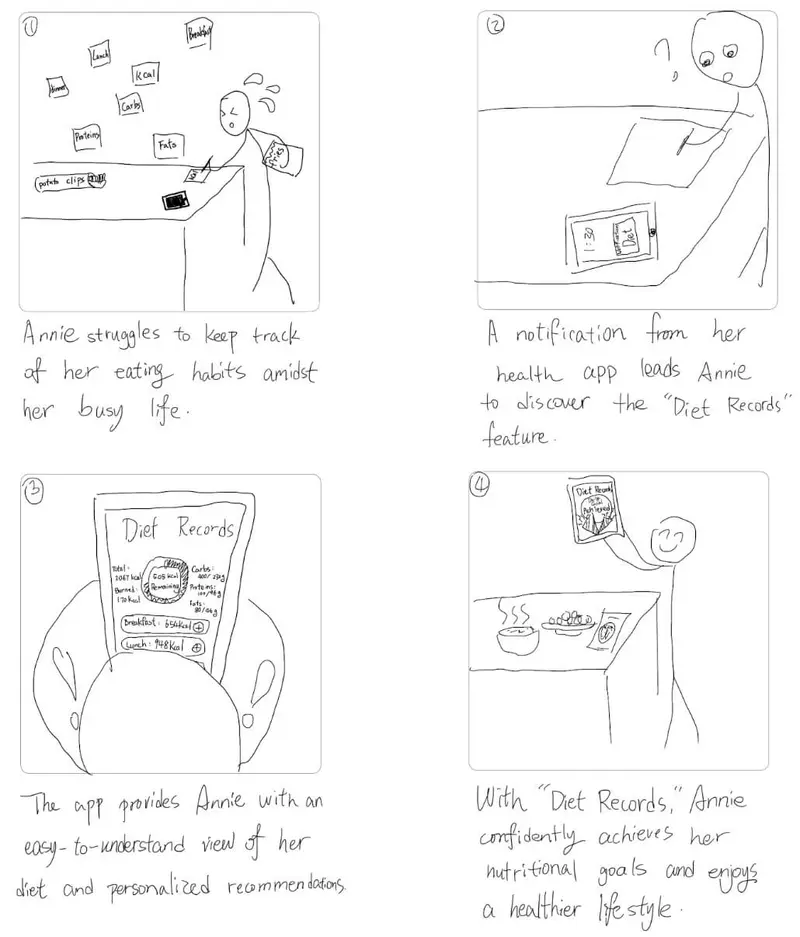 ①
Breakfast
Lunch
Kcal
Dinner
Carbs
Proteins
Fats
Fries
potato clips
Annie struggles to keep track
of her eating habits amidst
her busy life.
②
?
1:30
Diet
A notification from her
health app leads Annie
to discover the "Diet Records"
feature.
③
Diet Records
Total:
2067 kcal
Burned:
170 Kcal
505 kcal
Remaining
Carbs:
Proteins:
Fats:
Breakfast: 654Kcal
Lunch: 948Kcal
The app provides Annie with an
easy-to-understand view of her
diet and personalized recommendations.
④
Diet Record
With "Diet Records," Annie
confidently achieves her
nutritional goals and enjoys
a healthier lifestyle.